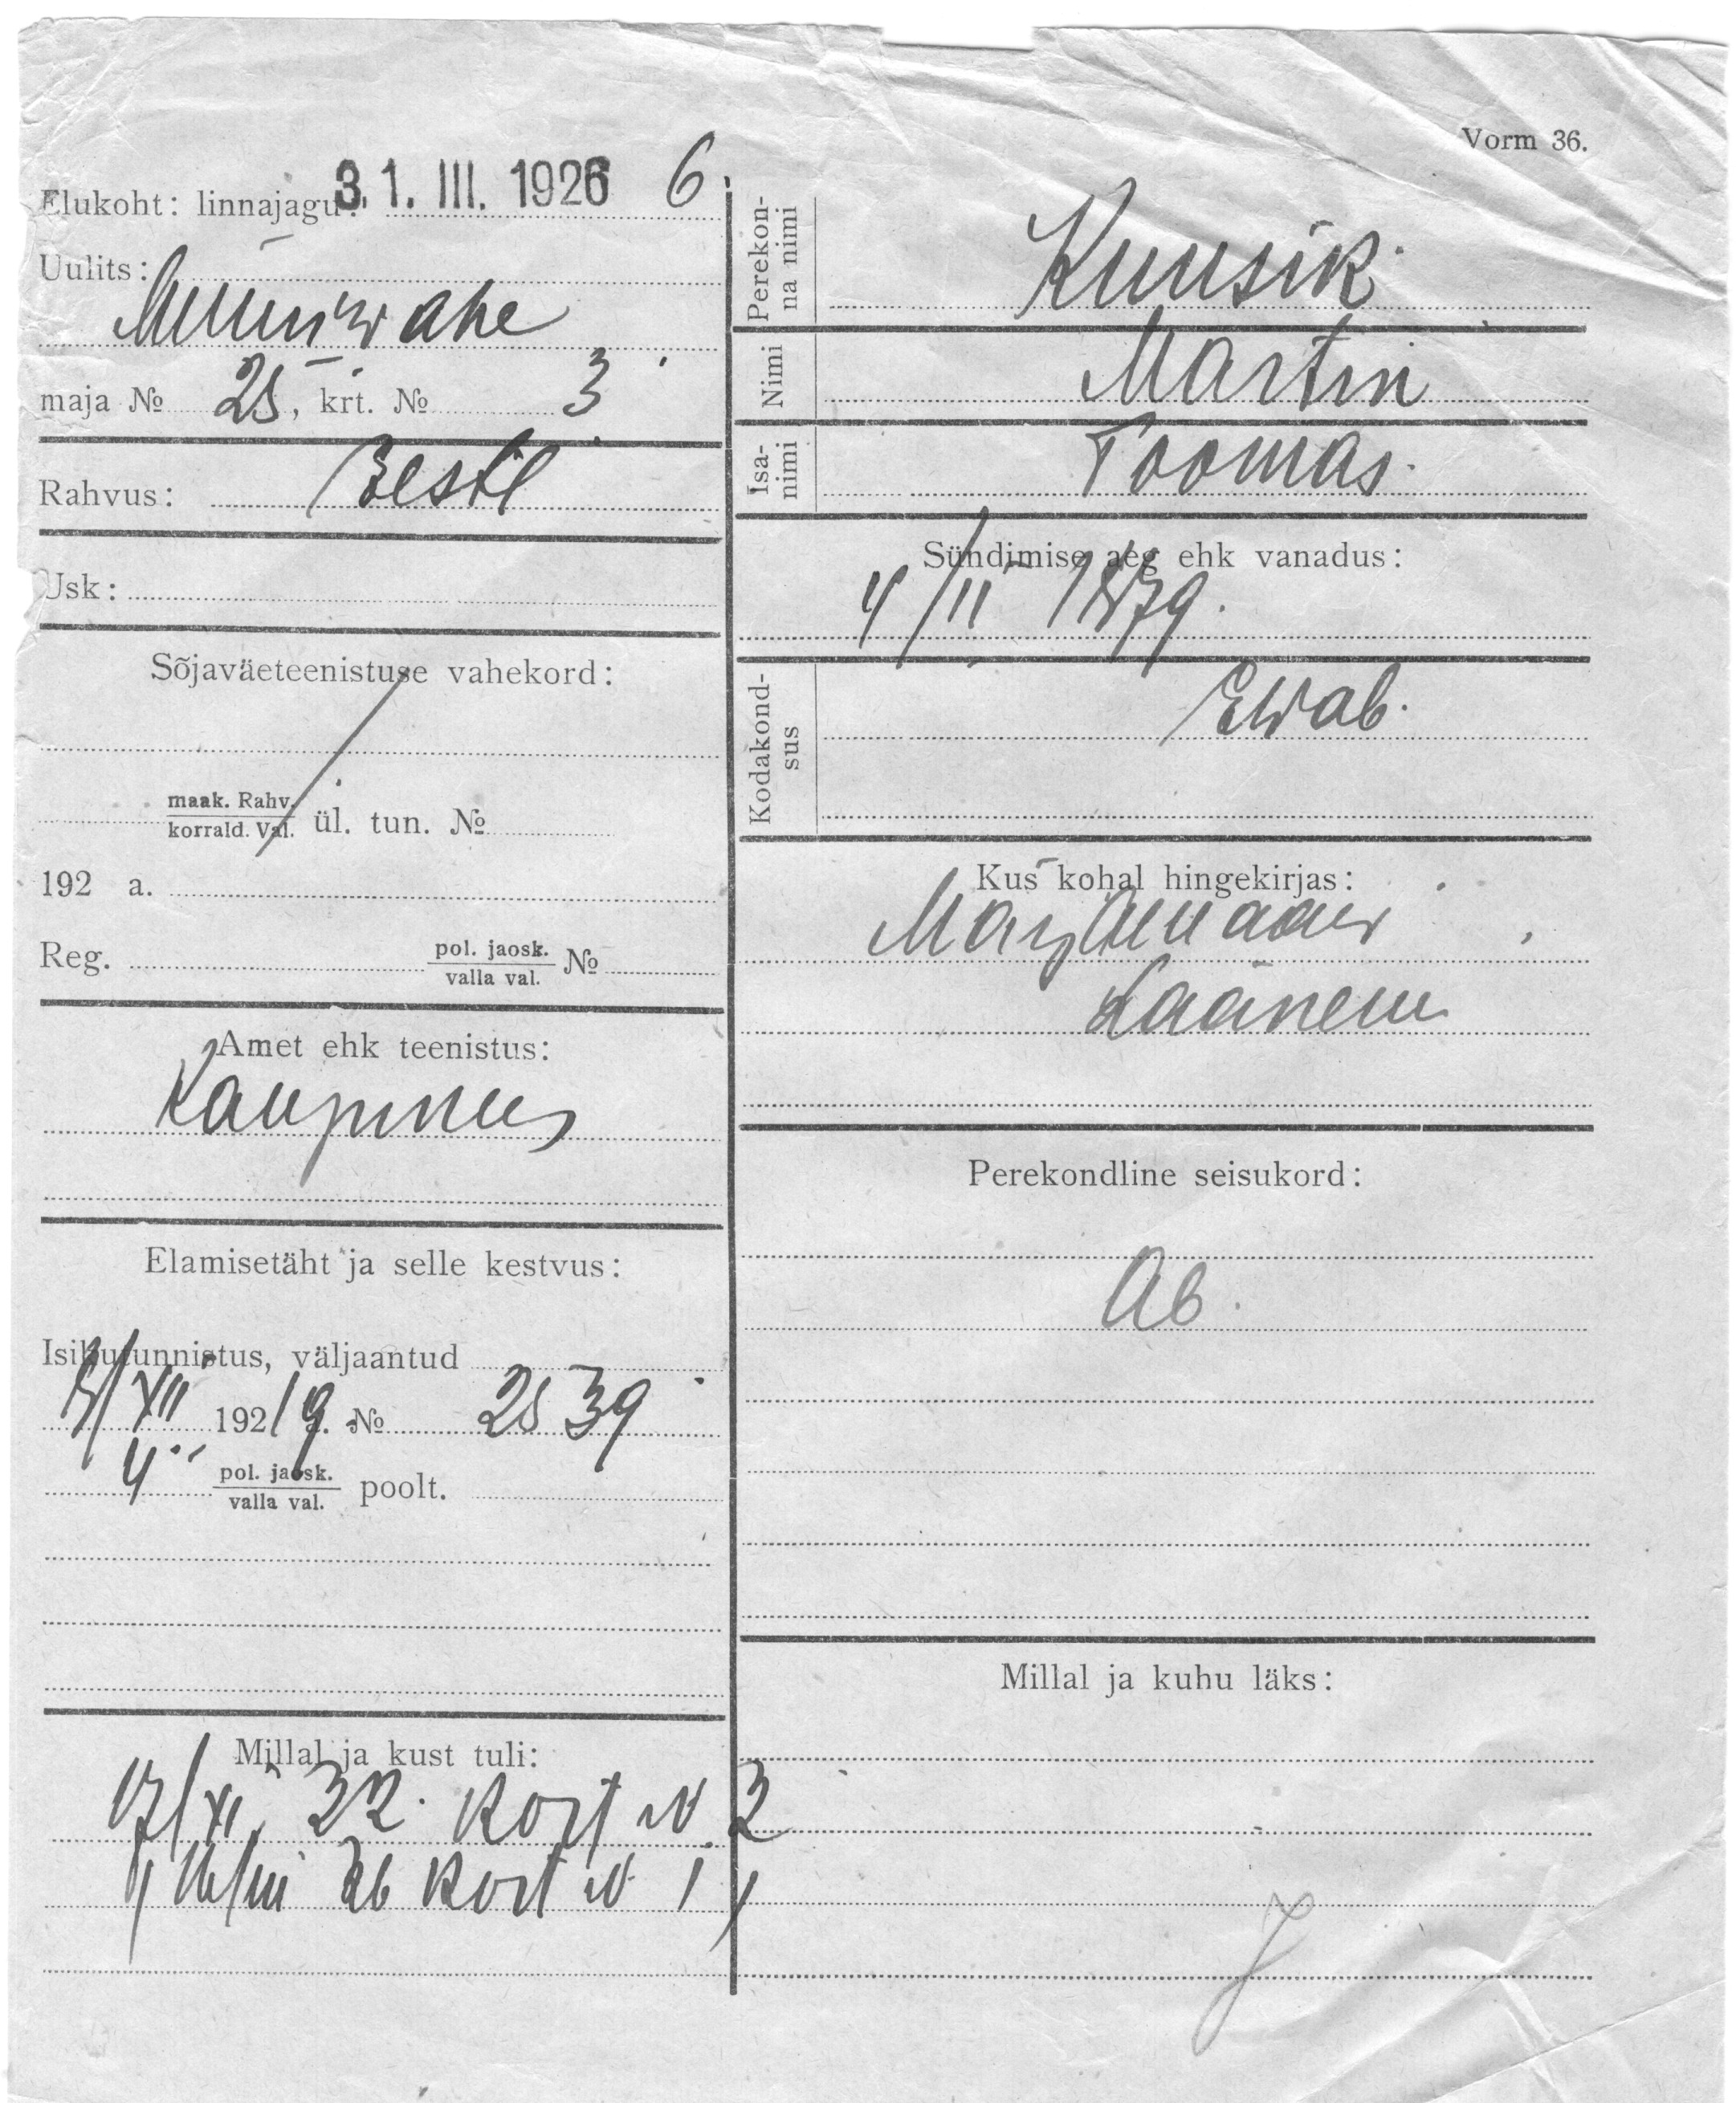 Vorm 36.
Elukoht: linnajagu: 31. III. 1926 6.
Uulits:
Müüriwahe
maja № 25, krt. № 3
Rahvus: Eesti
Usk:
Sõjaväeteenistuse vahekord:
maak. Rahv.
korrald. Val. ül. tun. №
192 a.
Reg. pol. jaosk.
valla val. №
Amet ehk teenistus:
Kaupmees
Elamisetäht ja selle kestvus:
Isikutunnistus, väljaantud
XII 1921 9. № 2539
4 pol. jaosk.
valla val. poolt.
Millal ja kust tuli:
17/XI 22. Kort N. 2
16/III 26 Kort N 1
Perekon-
na nimi
Kuusik
Nimi
Martin
Isa-
nimi
Toomas.
Sündimise aeg ehk vanadus:
4/II 1879.
Kodakond-
sus
EWab.
Kus kohal hingekirjas:
Läänem
Perekondline seisukord:
Ab.
Millal ja kuhu läks: